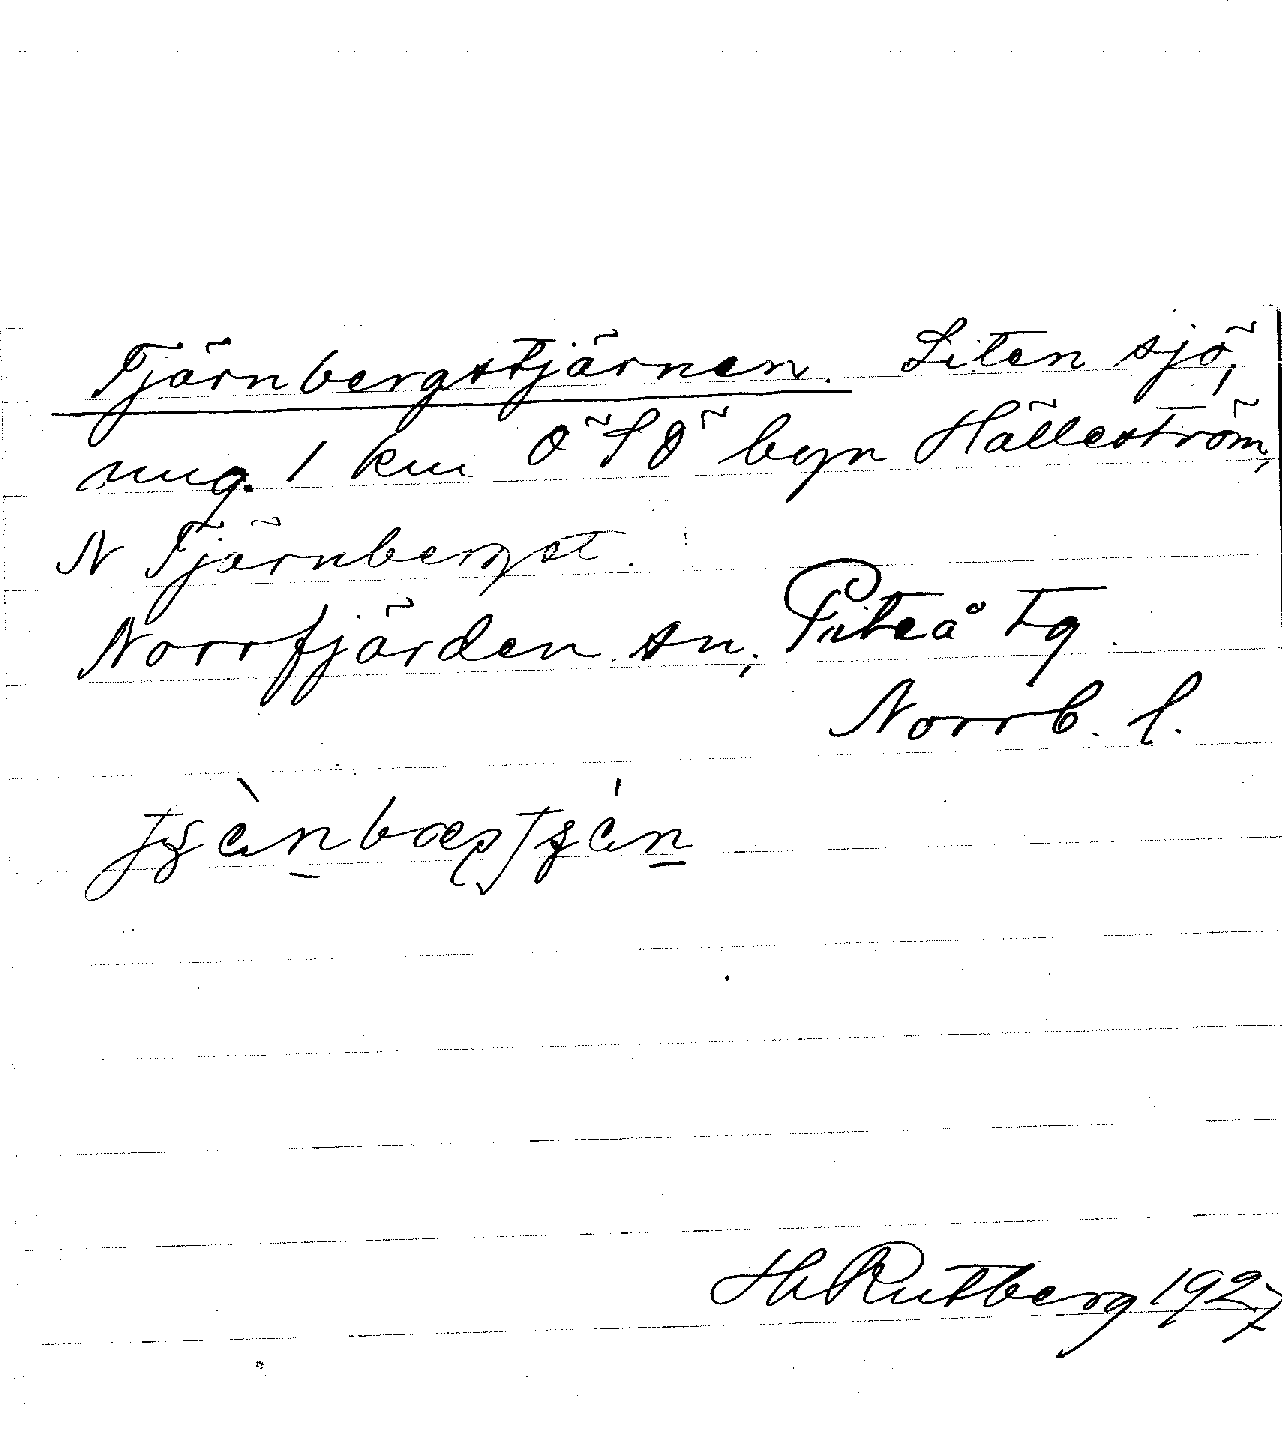 Tjärnbergstjärnen. Liten sjö,
ung. 1 km ÖSÖ byn Hälleström,
N Tjärnberget.
Norrfjärden sn, Piteå tg
Norrb. l.
H Rutberg 1927